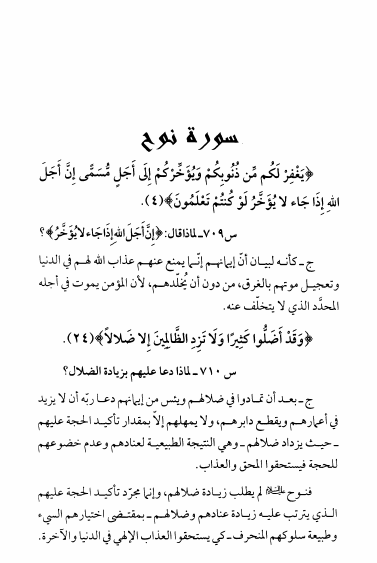 سورة نوح
﴿يَغْفِرْ لَكُم مِّن ذُنُوبِكُمْ وَيُؤَخِّرْكُمْ إِلَى أَجَلٍ مُّسَمًّى إِنَّ أَجَلَ
اللهِ إِذَا جَاء لا يُؤَخَّرُ لَوْ كُنتُمْ تَعْلَمُونَ﴾(٤).
س٧٠٩ـ لماذا قال: ﴿إِنَّ أَجَلَ اللهِ إِذَا جَاء لا يُؤَخَّرُ﴾؟
ج ـ كأنه لبيان أنّ إيمانهم إنّما يمنع عنهم عذاب الله لهم في الدنيا
وتعجيل موتهم بالغرق، من دون أن يُخلّدهم، لأن المؤمن يموت في أجله
المحدَّد الذي لا يتخلّف عنه.
﴿وَقَدْ أَضَلُّوا كَثِيرًا وَلَا تَزِدِ الظَّالِمِينَ إِلا ضَلالاً﴾(٢٤).
س ٧١٠ ـ لماذا دعا عليهم بزيادة الضلال؟
ج ـ بعد أن تمادوا في ضلالهم ويئس من إيمانهم دعا ربّه أن لا يزيد
في أعمارهم ويقطع دابرهم، ولا يمهلهم إلاّ بمقدار تأكيد الحجة عليهم
ـ حيث يزداد ضلالهم ـ وهي النتيجة الطبيعية لعنادهم وعدم خضوعهم
للحجة فيستحقوا المحق والعذاب.
فنوح لم يطلب زيادة ضلالهم، وإنما مجرّد تأكيد الحجة عليهم
الذي يترتب عليه زيادة عنادهم وضلالهم ـ بمقتضى اختيارهم السيء
وطبيعة سلوكهم المنحرف ـ كي يستحقوا العذاب الإلهي في الدنيا والآخرة.